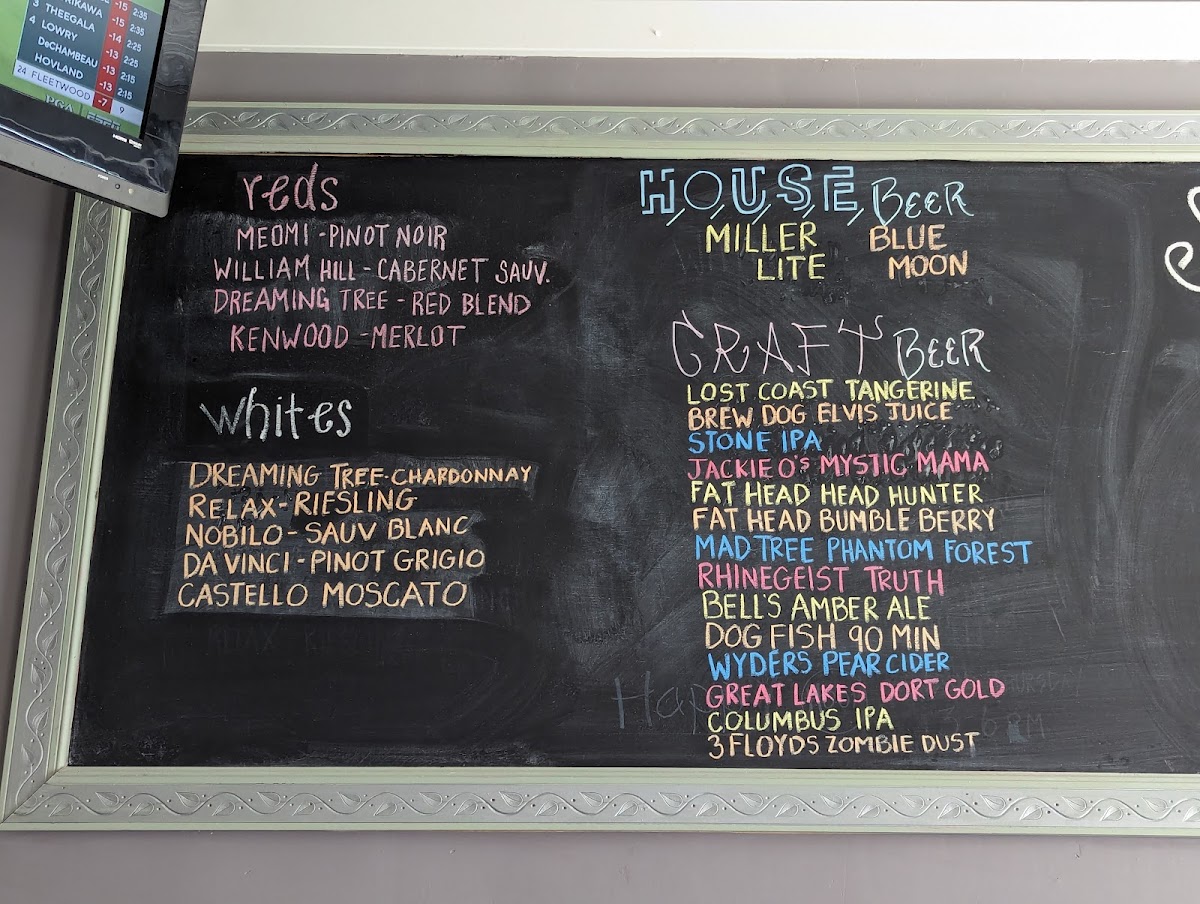 RIKAWA -15 2:35
3 THEEGALA -15 2:35
4 LOWRY -14 2:25
DeCHAMBEAU -13 2:25
HOVLAND -13 2:15
24 FLEETWOOD -7 9
PGA ESPN
reds
MEOMI - PINOT NOIR
WILLIAM HILL - CABERNET SAUV.
DREAMING TREE - RED BLEND
KENWOOD - MERLOT
whites
DREAMING TREE - CHARDONNAY
RELAX - RIESLING
NOBILO - SAUV BLANC
DA VINCI - PINOT GRIGIO
CASTELLO MOSCATO
HOUSE BEER
MILLER LITE
BLUE MOON
CRAFT BEER
LOST COAST TANGERINE
BREW DOG ELVIS JUICE
STONE IPA
JACKIE O'S MYSTIC MAMA
FAT HEAD HEAD HUNTER
FAT HEAD BUMBLE BERRY
MAD TREE PHANTOM FOREST
RHINEGEIST TRUTH
BELL'S AMBER ALE
DOG FISH 90 MIN
WYDERS PEAR CIDER
GREAT LAKES DORT GOLD
COLUMBUS IPA
3 FLOYDS ZOMBIE DUST